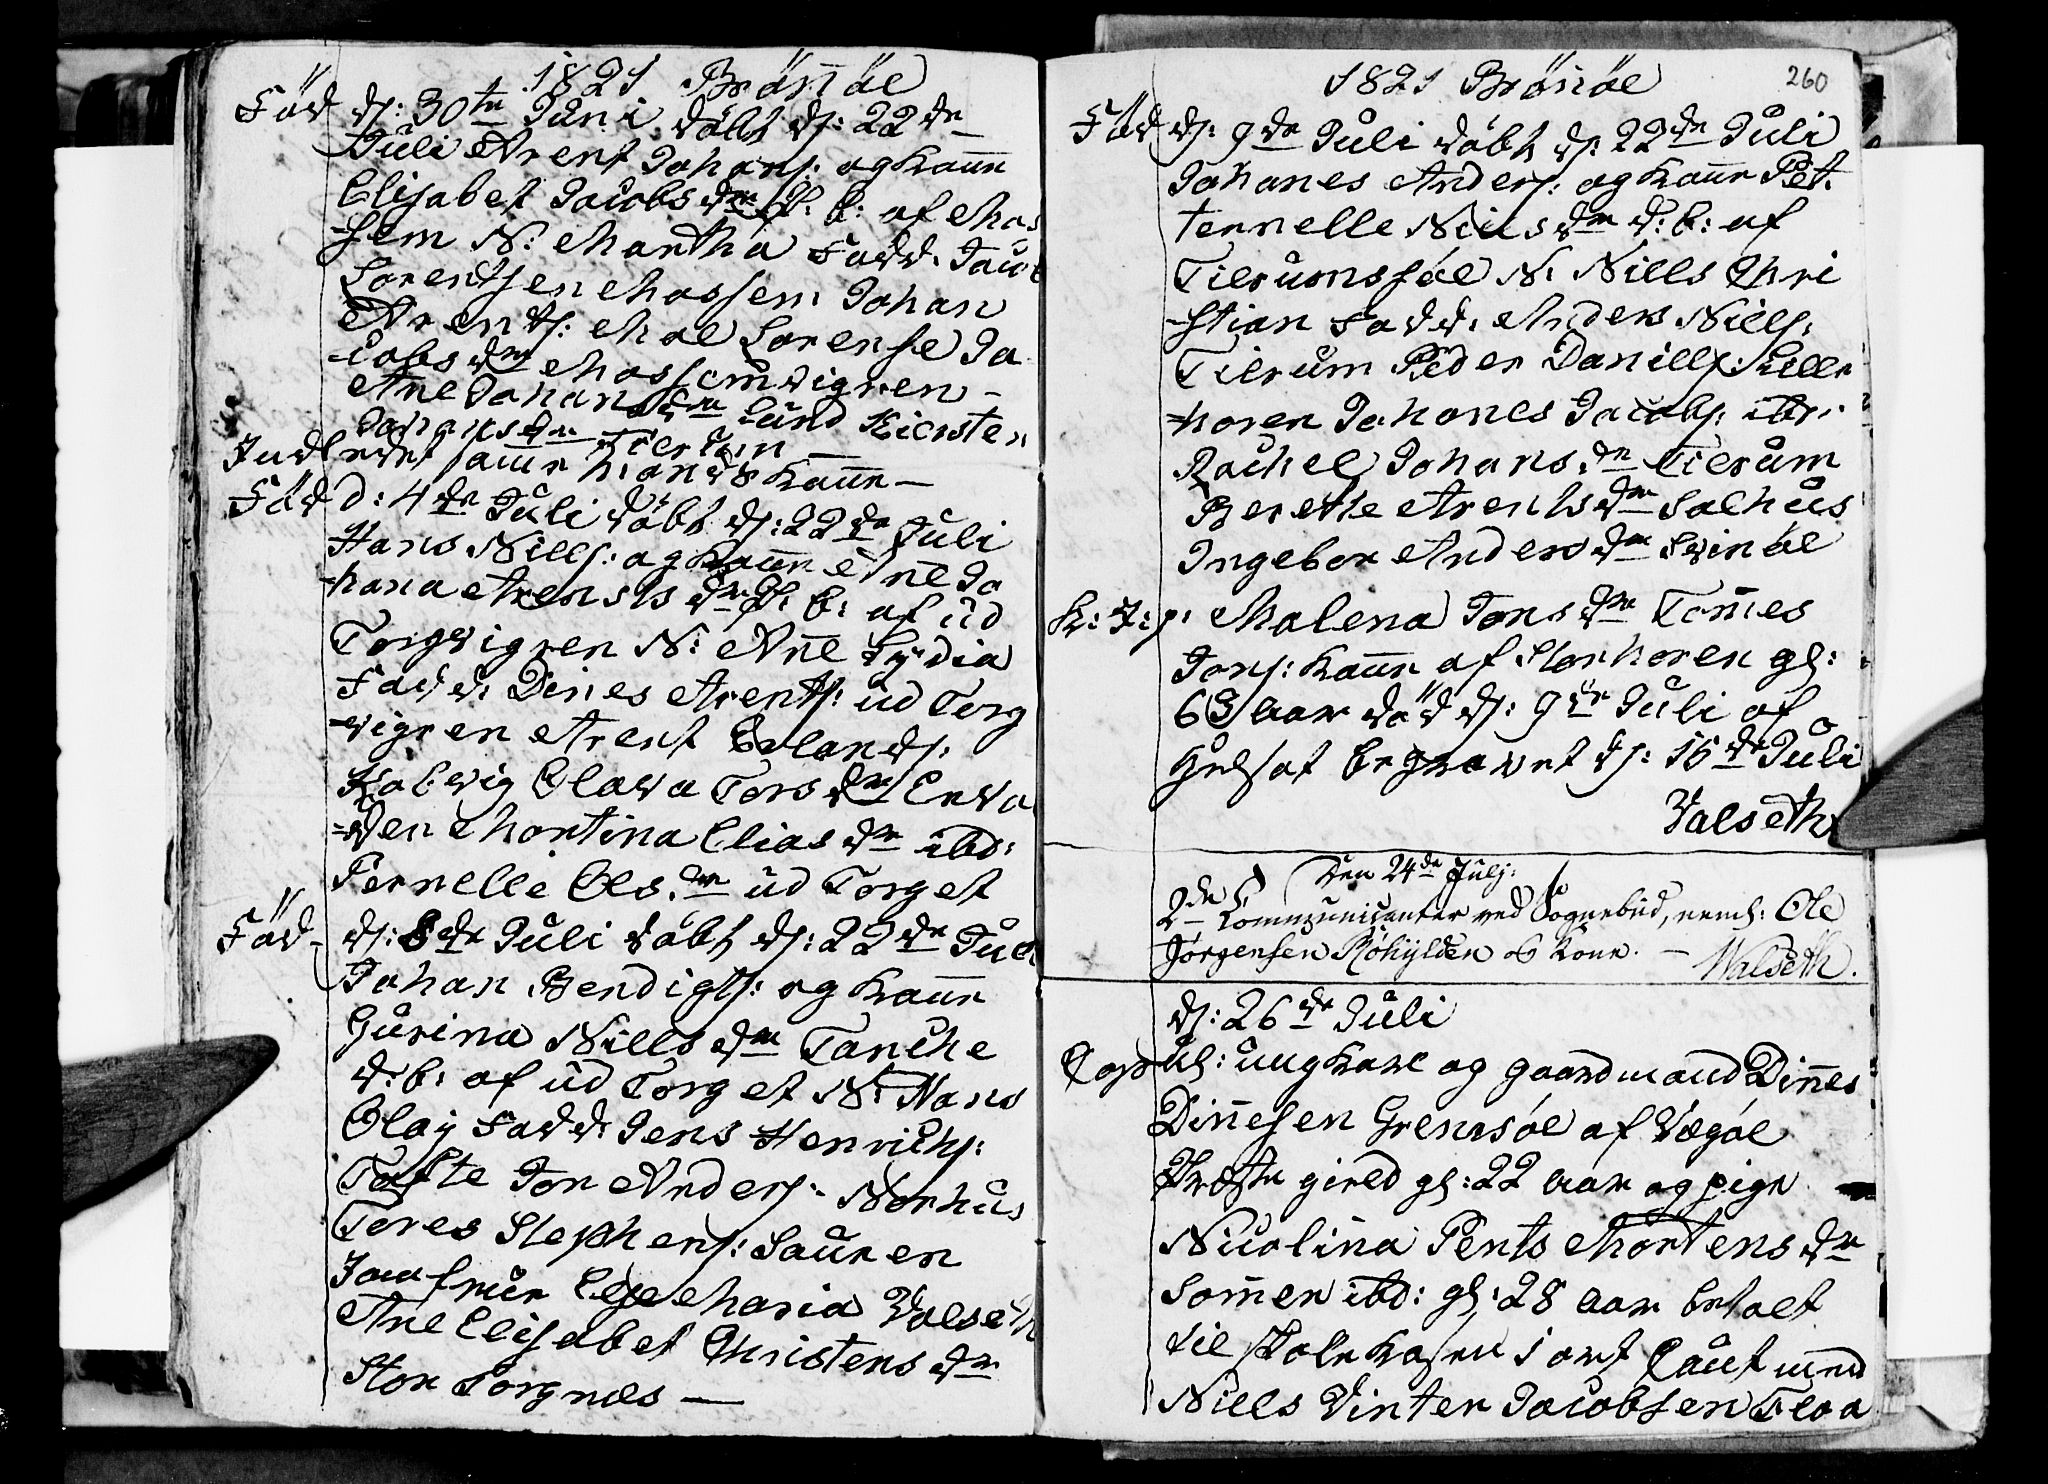 1821 Brönöe
Föd d: 30te Juni döbt d: 22de
Juli Arent Johans: og Kaane
Elisabet Jacobsdr d: b: af Mos
sem N: Martha Fadd: Jacob
Lorentsen Mossem Johan
Arents: Moe Lorense Ja
cobsdr Mossemvigren
Ane Johansdr Lund Kiersten
Johansdr Tilrum
Indledet samme Mands Kaane
Föd d: 4de Juli döbt d: 22de Juli
Hans Nills: og Kaane Ane Jo
hana Arentsdr d: b: af ud
Torgvigren N: Ane Lydia
Fadd: Dines Arents: ud Torg
vigren Arent Erlands:
Kalvvig Olava Torsdr Erva
den Martina Eliasdr ibd:
Pernelle Olsdr ud Torget
Föd d: 8de Juli döbt d: 22de Juli
Johan Bendigts: og Kaane
Gurina Nillsdr Tanche
d: b: af ud Torget N: Hans
Olay Fadd: Jens Henrichs:
Tofte Jon Anders: Norhus
Tores Stephens: Sauren
Jomfrue Ege Maria Valseth
Ane Elisabet Christensdr
Stor Torgnes
1821 Brönöe 260
Föd d: 9de Juli döbt d: 22de Juli
Johanes Anders: og Kaane Pet
ternelle Nilsdr d: b: af
Tilrumsföe N: Nills Chri
stian Fadd: Anders Nills:
Tilrum Peder Danills: Lille
horen Johanes Jacobs: ibd:
Rachel Johansdr Tilrum
Berethe Arentsdr Salhus
Ingebor Andersdr Svinöe
K: J: p: Malena Jonsdr Tomes
Jons: Kaane af Storhoren gl:
63 aar död d: 9de Juli af
begravet d: 15de Juli
Valseth
Den 24de Julj:
2de Communicanter ved Sognebud, neml: Ole
Jørgensen Røhylden og Kone. — Walseth.
d: 26de Juli
Cop ul: ungkarl og gaardmand Dines
Dinesen Grensöe af Vegöe
Præste gield gl: 22 aar og pige
Nicolina Pents Mortensdr
Sommer ibd: gl: 28 aar betalt
til skole kassen 1 ort Caut: med
Nills Vinter Jacobsen Floa